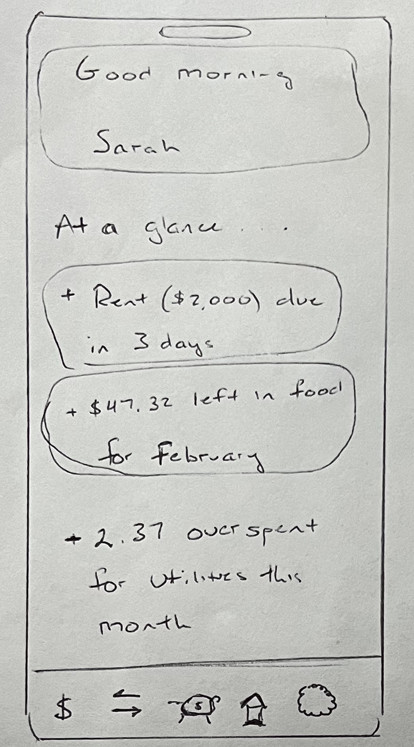 Good morning
Sarah
At a glance....
+ Rent ($2,000) due
in 3 days
+ $47.32 left in food
for February
+ 2.37 overspent
for utilities this
month
$
$